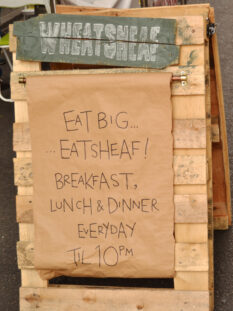 WHEATSHEAF
EAT BIG...
...EATSHEAF!
BREAKFAST,
LUNCH & DINNER
EVERYDAY
TIL 10PM